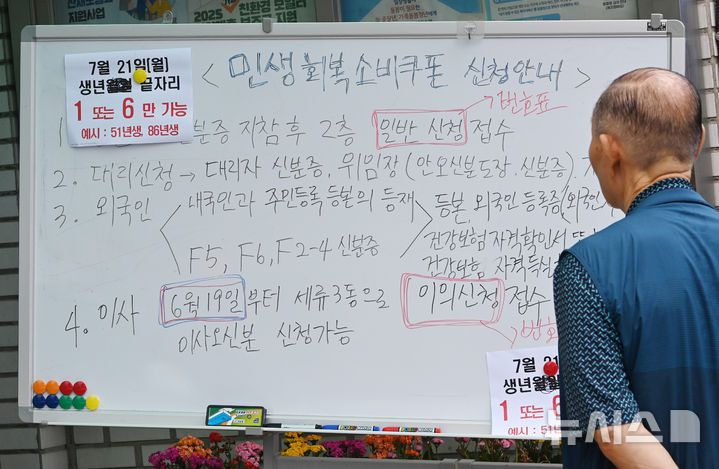 지원사업
2025
7월 21일(월)
생년 끝자리
1 또는 6 만 가능
예시 : 51년생, 86년생
<민생회복 소비쿠폰 신청안내>
번호표
1. 분증 지참 후 2층 일반 신청 접수
2. 대리신청 → 대리자 신분증, 위임장 (안오신분도장.신분증)
3. 외국인
내국인과 주민등록 등본의 등재
F5, F6, F2-4 신분증
등본, 외국인 등록증(외국인
건강보험 자격확인서 또
건강보험 자격득실
4. 이사 6월19일부터 세류3동으로
이사오신분 신청가능
이의신청 접수
번호
7월 21
생년
1 또는 6
예시 : 51년
뉴시스